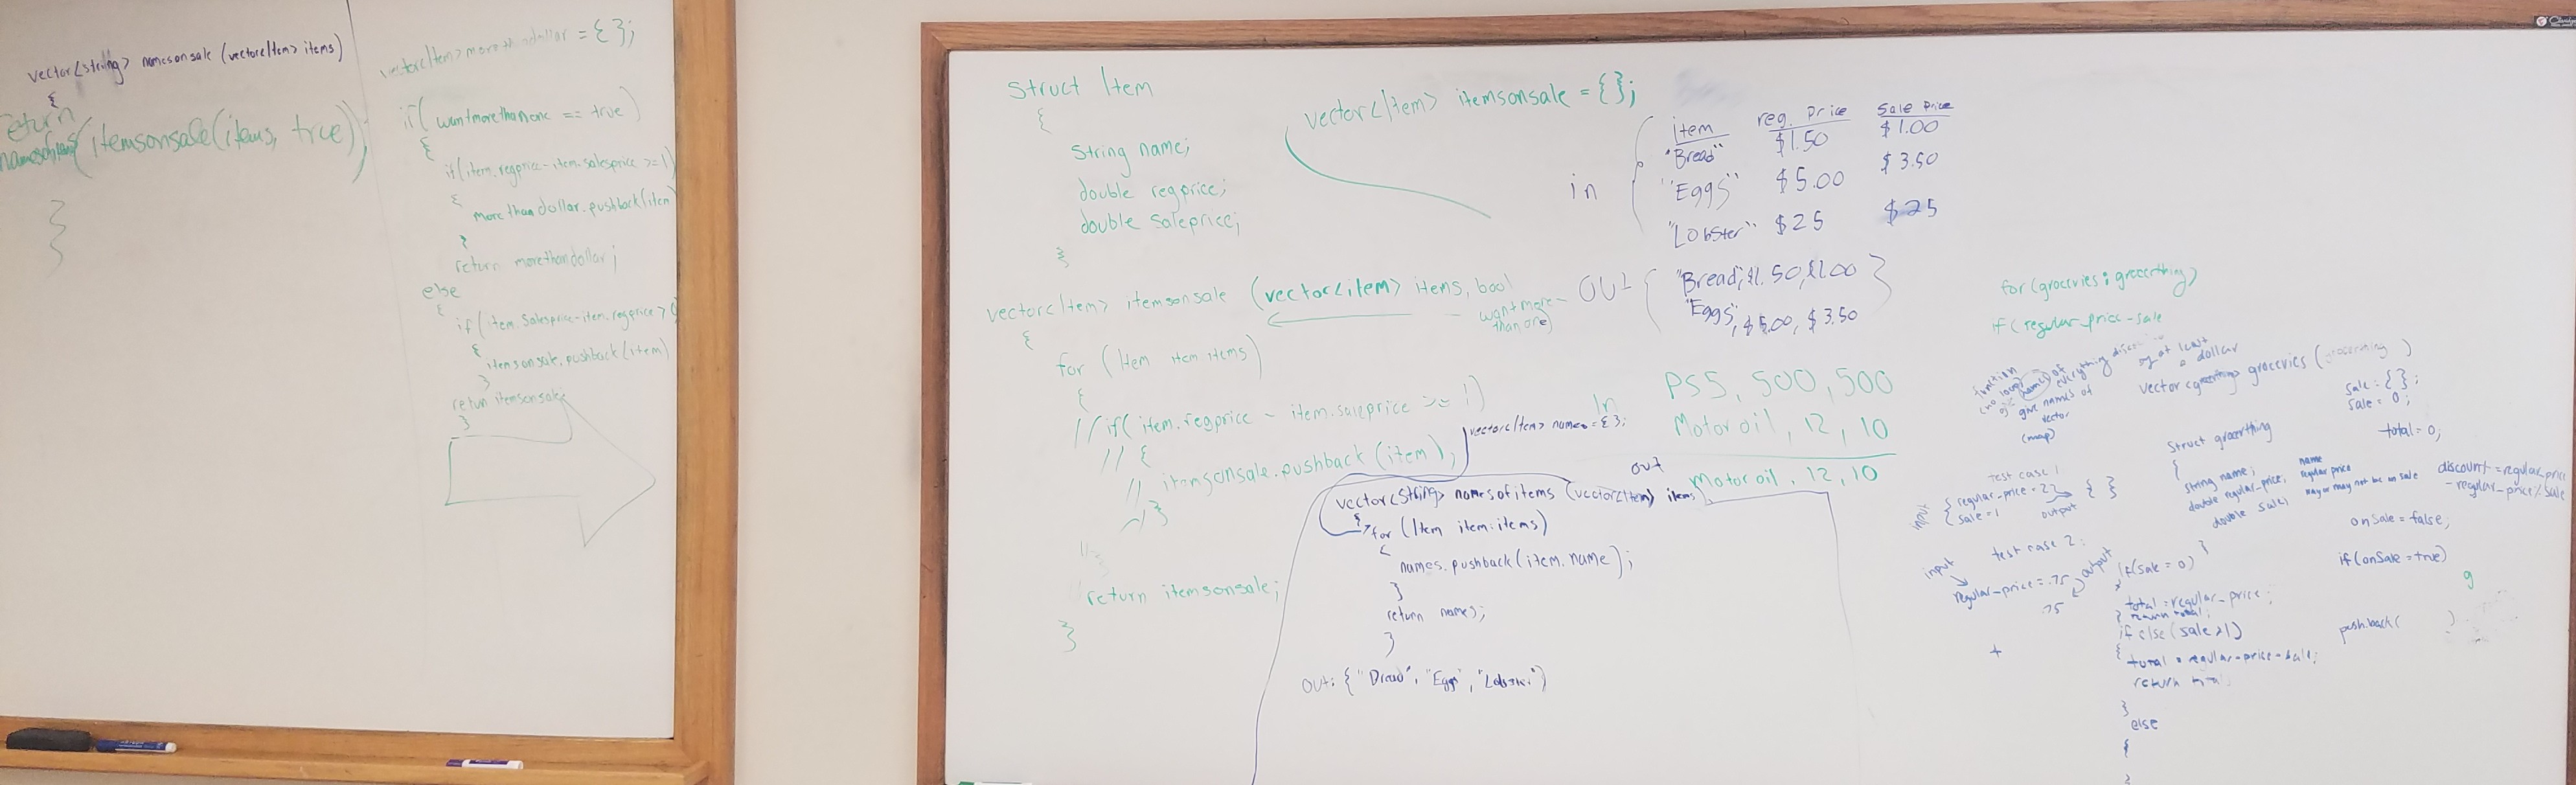 vector<string> namesonsale (vector<Item> items)
{
return
(itemsonsale(items, true));
}
vector<Item> morethandollar = { };
if( wantmorethanone == true)
{
if(item.regprice-item.salesprice >=1)
{
more than dollar.pushback(item
}
return morethandollar;
else
{
if(item.salesprice-item.regprice > 0
{
itemsonsale.pushback(item)
}
return itemsonsale
}
Struct Item
{
String name;
double regprice;
double saleprice;
}
vector<Item> itemsonsale = { };
vector<Item> itemsonsale (vector<item> items, bool
want more
than one)
{
for (Item item items)
{
//if( item.regprice - item.saleprice >= 1)
// {
// itemsonsale.pushback (item);
// }
//
return itemsonsale;
}
in
item reg. Price Sale Price
"Bread" $1.50 $1.00
"Eggs" $5.00 $3.50
"Lobster" $25 $25
OUT { "Bread, $1.50, $1.00 }
"Eggs", $5.00, $3.50
In
PS5, 500, 500
Motor oil, 12, 10
out
Motor oil, 12, 10
vector<Item> names = { };
vector<string> namesofitems (vector<Item> items
{
for (Item item:items)
{
names.pushback(item.name);
}
return names;
}
OUT: { "Bread", "Eggs", "Lobster" }
for (groceries : grocerthing)
if ( regular_price - sale
function
names of everything
by at least
a dollar
give names of
vector
(map)
vector<grocerthing> groceries (grocerthing )
sale = { };
sale = 0;
total = 0;
Struct grocerthing
{
string name; name
double regular_price; regular price
double sale; may or may not be on sale
}
discount = regular_price
- regular_price % sale
test case 1
input { regular_price = 22 { }
sale = 1 output
test case 2:
input
regular_price = .75 output
.75
onSale = false;
if(onSale = true)
g
if(sale = 0)
total = regular_price;
} return total;
if else (sale > 1)
{
total = regular-price-sale;
return
}
else
{
}
push.back( )
+